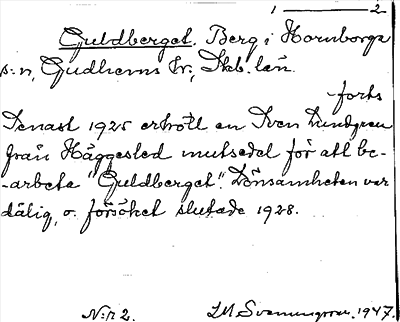 1 — 2
Guldberget. Berg i Hornborga
s:n, Gudhems hr; Skb. län.
-forts
Senast 1925 erhöll en Sven Lundgren
från Häggesled mutsedel för att be-
-arbeta "Guldberget". Lönsamheten var
dålig, o. försöket slutade 1928.
N:r 2. LM. Svenungsson. 1947.